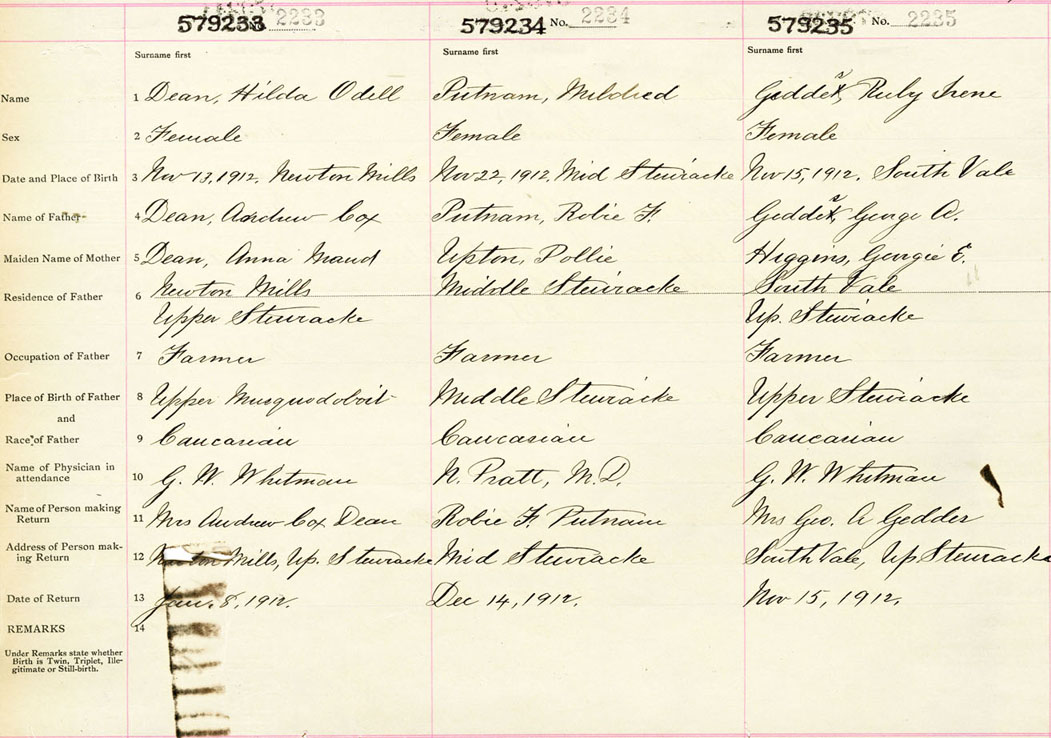 579233 No. 2233 579234 No. 2234 579235 No. 2235
Surname first Surname first Surname first
Name 1 Dean, Hilda Odell Putnam, Mildred Geddes, Ruby Irene
Sex 2 Female Female Female
Date and Place of Birth 3 Nov 13, 1912, Newton Mills Nov 22, 1912, Mid Stewiacke Nov 15, 1912, South Vale
Name of Father 4 Dean, Andrew Cox Putnam, Robie F. Geddes, George A.
Maiden Name of Mother 5 Dean, Anna Maud Upton, Pollie Higgins, Georgie E.
Residence of Father 6 Newton Mills Middle Stewiacke South Vale
Upper Stewiacke Up. Stewiacke
Occupation of Father 7 Farmer Farmer Farmer
Place of Birth of Father 8 Upper Musquodoboit Middle Stewiacke Upper Stewiacke
and
Race of Father 9 Caucasian Caucasian Caucasian
Name of Physician in
attendance 10 G. W. Whitman N. Pratt, M.D. G. W. Whitman
Name of Person making
Return 11 Mrs Andrew Cox Dean Robie F. Putnam Mrs Geo. A Geddes
Address of Person mak-
ing Return 12 Newton Mills, Up. Stewiacke Mid Stewiacke South Vale, Up Stewiacke
Date of Return 13 Jan. 8, 1912. Dec 14, 1912. Nov 15, 1912.
REMARKS 14
Under Remarks state whether
Birth is Twin, Triplet, Ille-
gitimate or Still-birth.